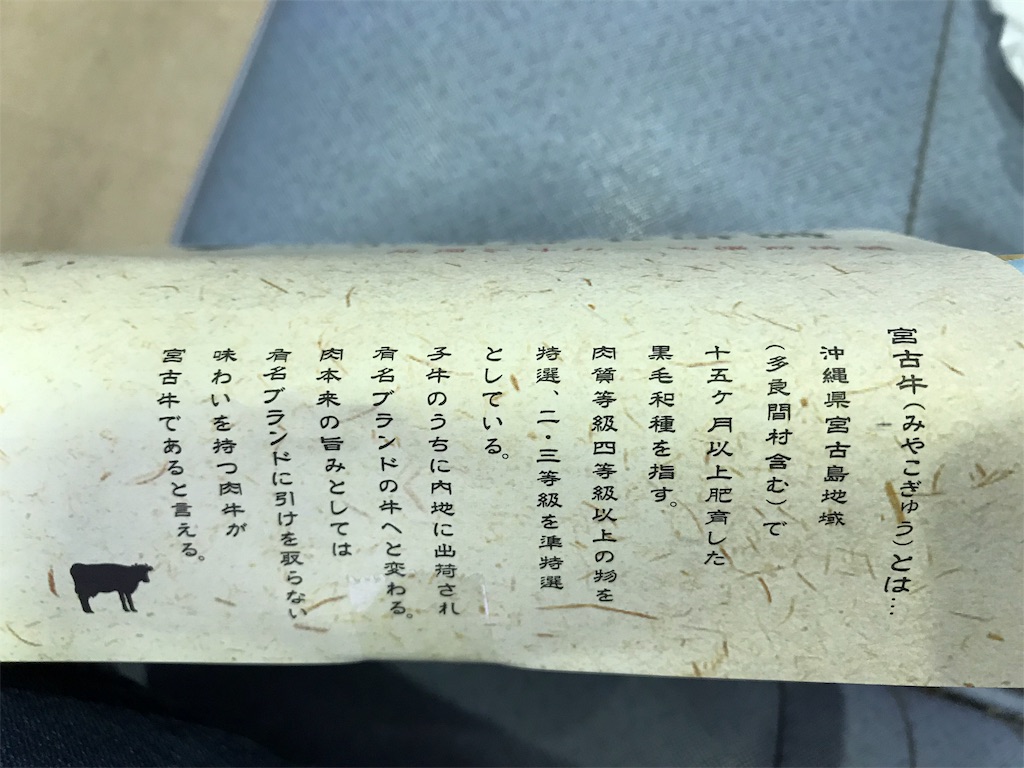 宮古牛(みやこぎゅう)とは…
沖縄県宮古島地域
(多良間村含む)で
十五ヶ月以上肥育した
黒毛和種を指す。
肉質等級四等級以上の物を
特選、二・三等級を準特選
としている。
子牛のうちに内地に出荷され
有名ブランドの牛へと変わる。
肉本来の旨みとしては
有名ブランドに引けを取らない
味わいを持つ肉牛が
宮古牛であると言える。